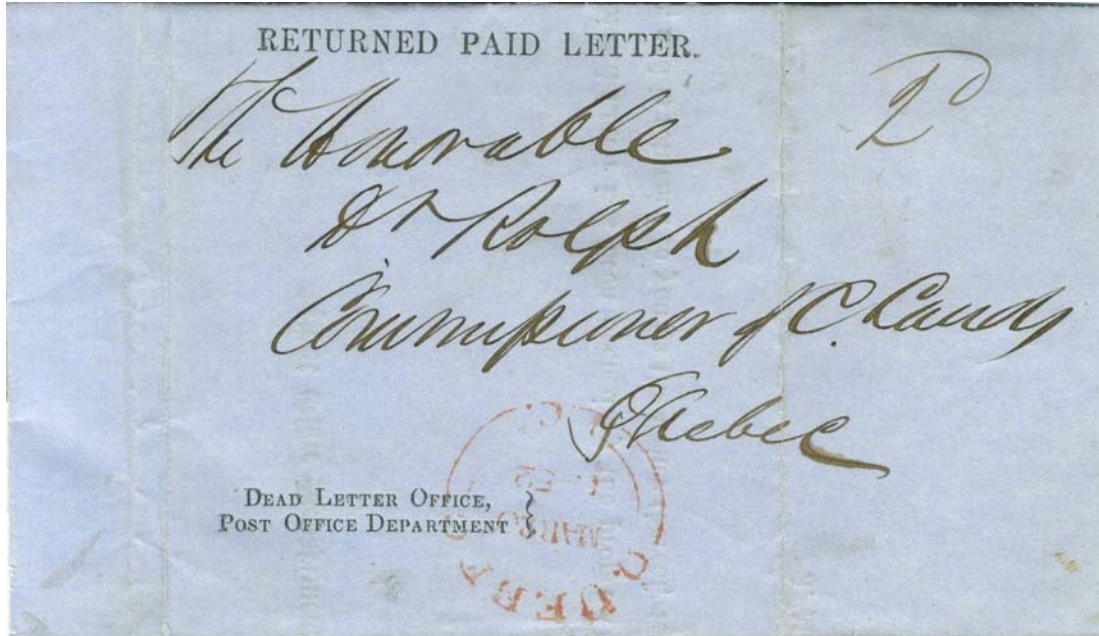 RETURNED PAID LETTER.
2d
The Honorable
Dr Rolph
Commissioner of C. Lands
Quebec
DEAD LETTER OFFICE,
POST OFFICE DEPARTMENT
QUEBEC
MAR